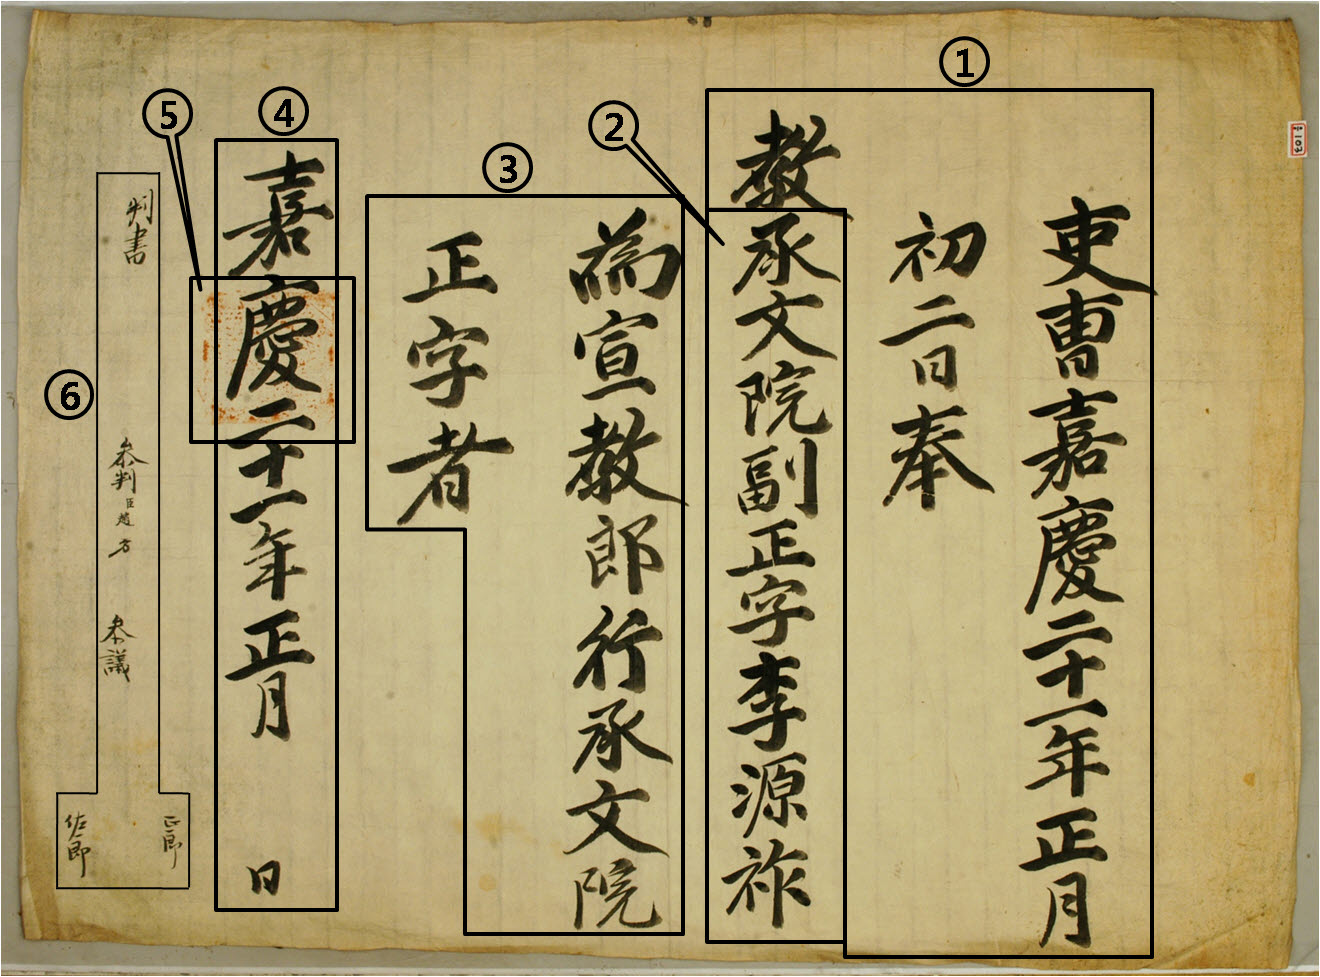 ①
②
③
④
⑤
⑥
吏曹嘉慶二十一年正月
初二日奉
教承文院副正字李源祚
為宣教郎行承文院
正字者
嘉慶二十一年正月 日
判書 參判臣趙 參議
正郎
佐郎
103